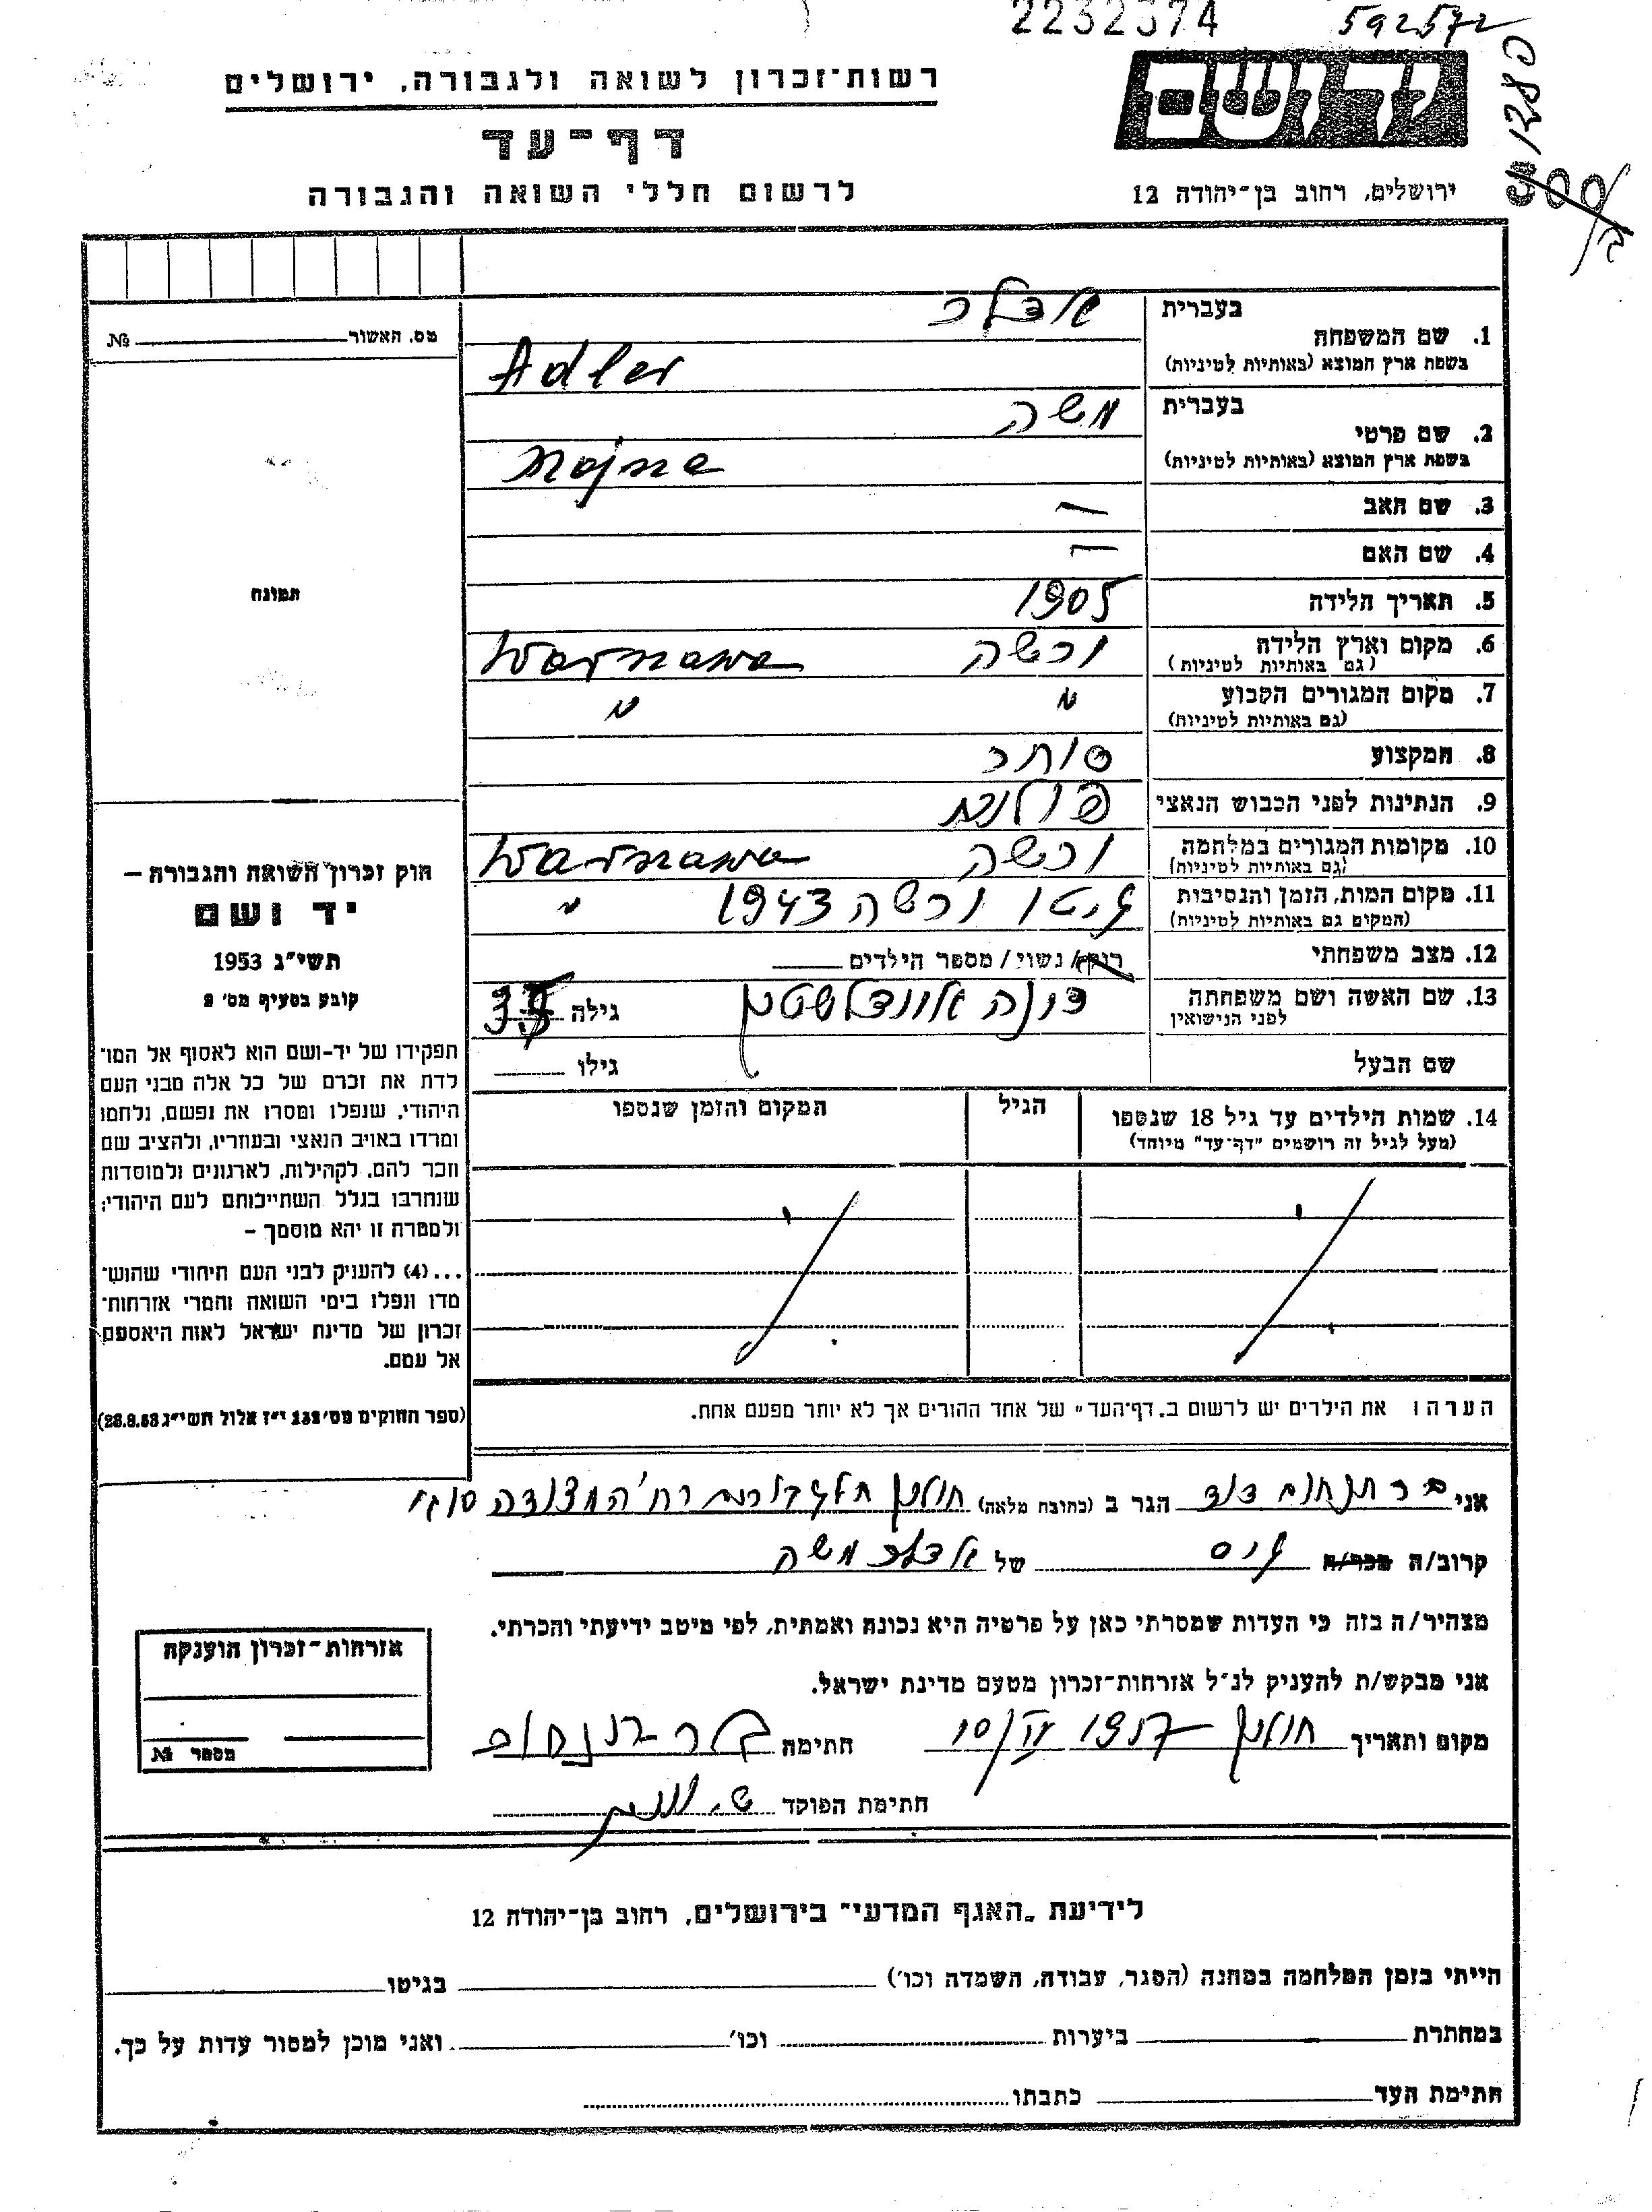 2232374
592572
יד ושם
רשות־זכרון לשואה ולגבורה, ירושלים
דף־עד
לרשום חללי השואה והגבורה
ירושלים, רחוב בן־יהודה 12
מס. האשור № 
תמונה
1. שם המשפחה
בעברית אדלר
בשפת ארץ המוצא (באותיות לטיניות) Adler
2. שם פרטי
בעברית משה
בשפת ארץ המוצא (באותיות לטיניות)
3. שם האב —
4. שם האם —
5. תאריך הלידה 1905
6. מקום וארץ הלידה ורשה Warszawa
(גם באותיות לטיניות)
7. מקום המגורים הקבוע " "
(גם באותיות לטיניות)
8. המקצוע סוחר
9. הנתינות לפני הכבוש הנאצי פולנית
10. מקומות המגורים במלחמה ורשה Warszawa
(גם באותיות לטיניות)
11. מקום המות, הזמן והנסיבות גיטו ורשה 1943 "
(המקום גם באותיות לטיניות)
12. מצב משפחתי רוק/ נשוי / מספר הילדים
13. שם האשה ושם משפחתה גילה
לפני הנישואין
שם הבעל גילו
14. שמות הילדים עד גיל 18 שנספו הגיל המקום והזמן שנספו
(מעל לגיל זה רושמים "דף־עד" מיוחד)
הערה: את הילדים יש לרשום ב„דף־העד" של אחד ההורים אך לא יותר מפעם אחת.
חוק זכרון השואה והגבורה —
יד ושם
תשי"ג 1953
קובע בסעיף מס' 2
תפקידו של יד-ושם הוא לאסוף אל המו־
לדת את זכרם של כל אלה מבני העם
היהודי, שנפלו ומסרו את נפשם, נלחמו
ומרדו באויב הנאצי ובעוזריו, ולהציב שם
וזכר להם, לקהילות, לארגונים ולמוסדות
שנחרבו בגלל השתייכותם לעם היהודי;
ולמטרה זו יהא מוסמך —
...(4) להעניק לבני העם היהודי שהוש־
מדו ונפלו בימי השואה והמרי אזרחות־
זכרון של מדינת ישראל לאות היאספם
אל עמם.
(ספר החוקים מס' 132 י"ז אלול תשי"ג 28.8.53)
אני דוד הגר ב (כתובת מלאה) חולון
קרוב/ה מכר/ה גיס של אדלר משה
מצהיר/ה בזה כי העדות שמסרתי כאן על פרטיה היא נכונה ואמתית, לפי מיטב ידיעתי והכרתי.
אני מבקש/ת להעניק לנ"ל אזרחות־זכרון מטעם מדינת ישראל.
מקום ותאריך חולון 1957 חתימה
חתימת הפוקד
אזרחות־זכרון הוענקה
מספר №
לידיעת „האגף המדעי" בירושלים, רחוב בן־יהודה 12
הייתי בזמן המלחמה במחנה (הסגר, עבודה, השמדה וכו') בגיטו
במחתרת ביערות וכו' ואני מוכן למסור עדות על כך.
חתימת העד כתבתו